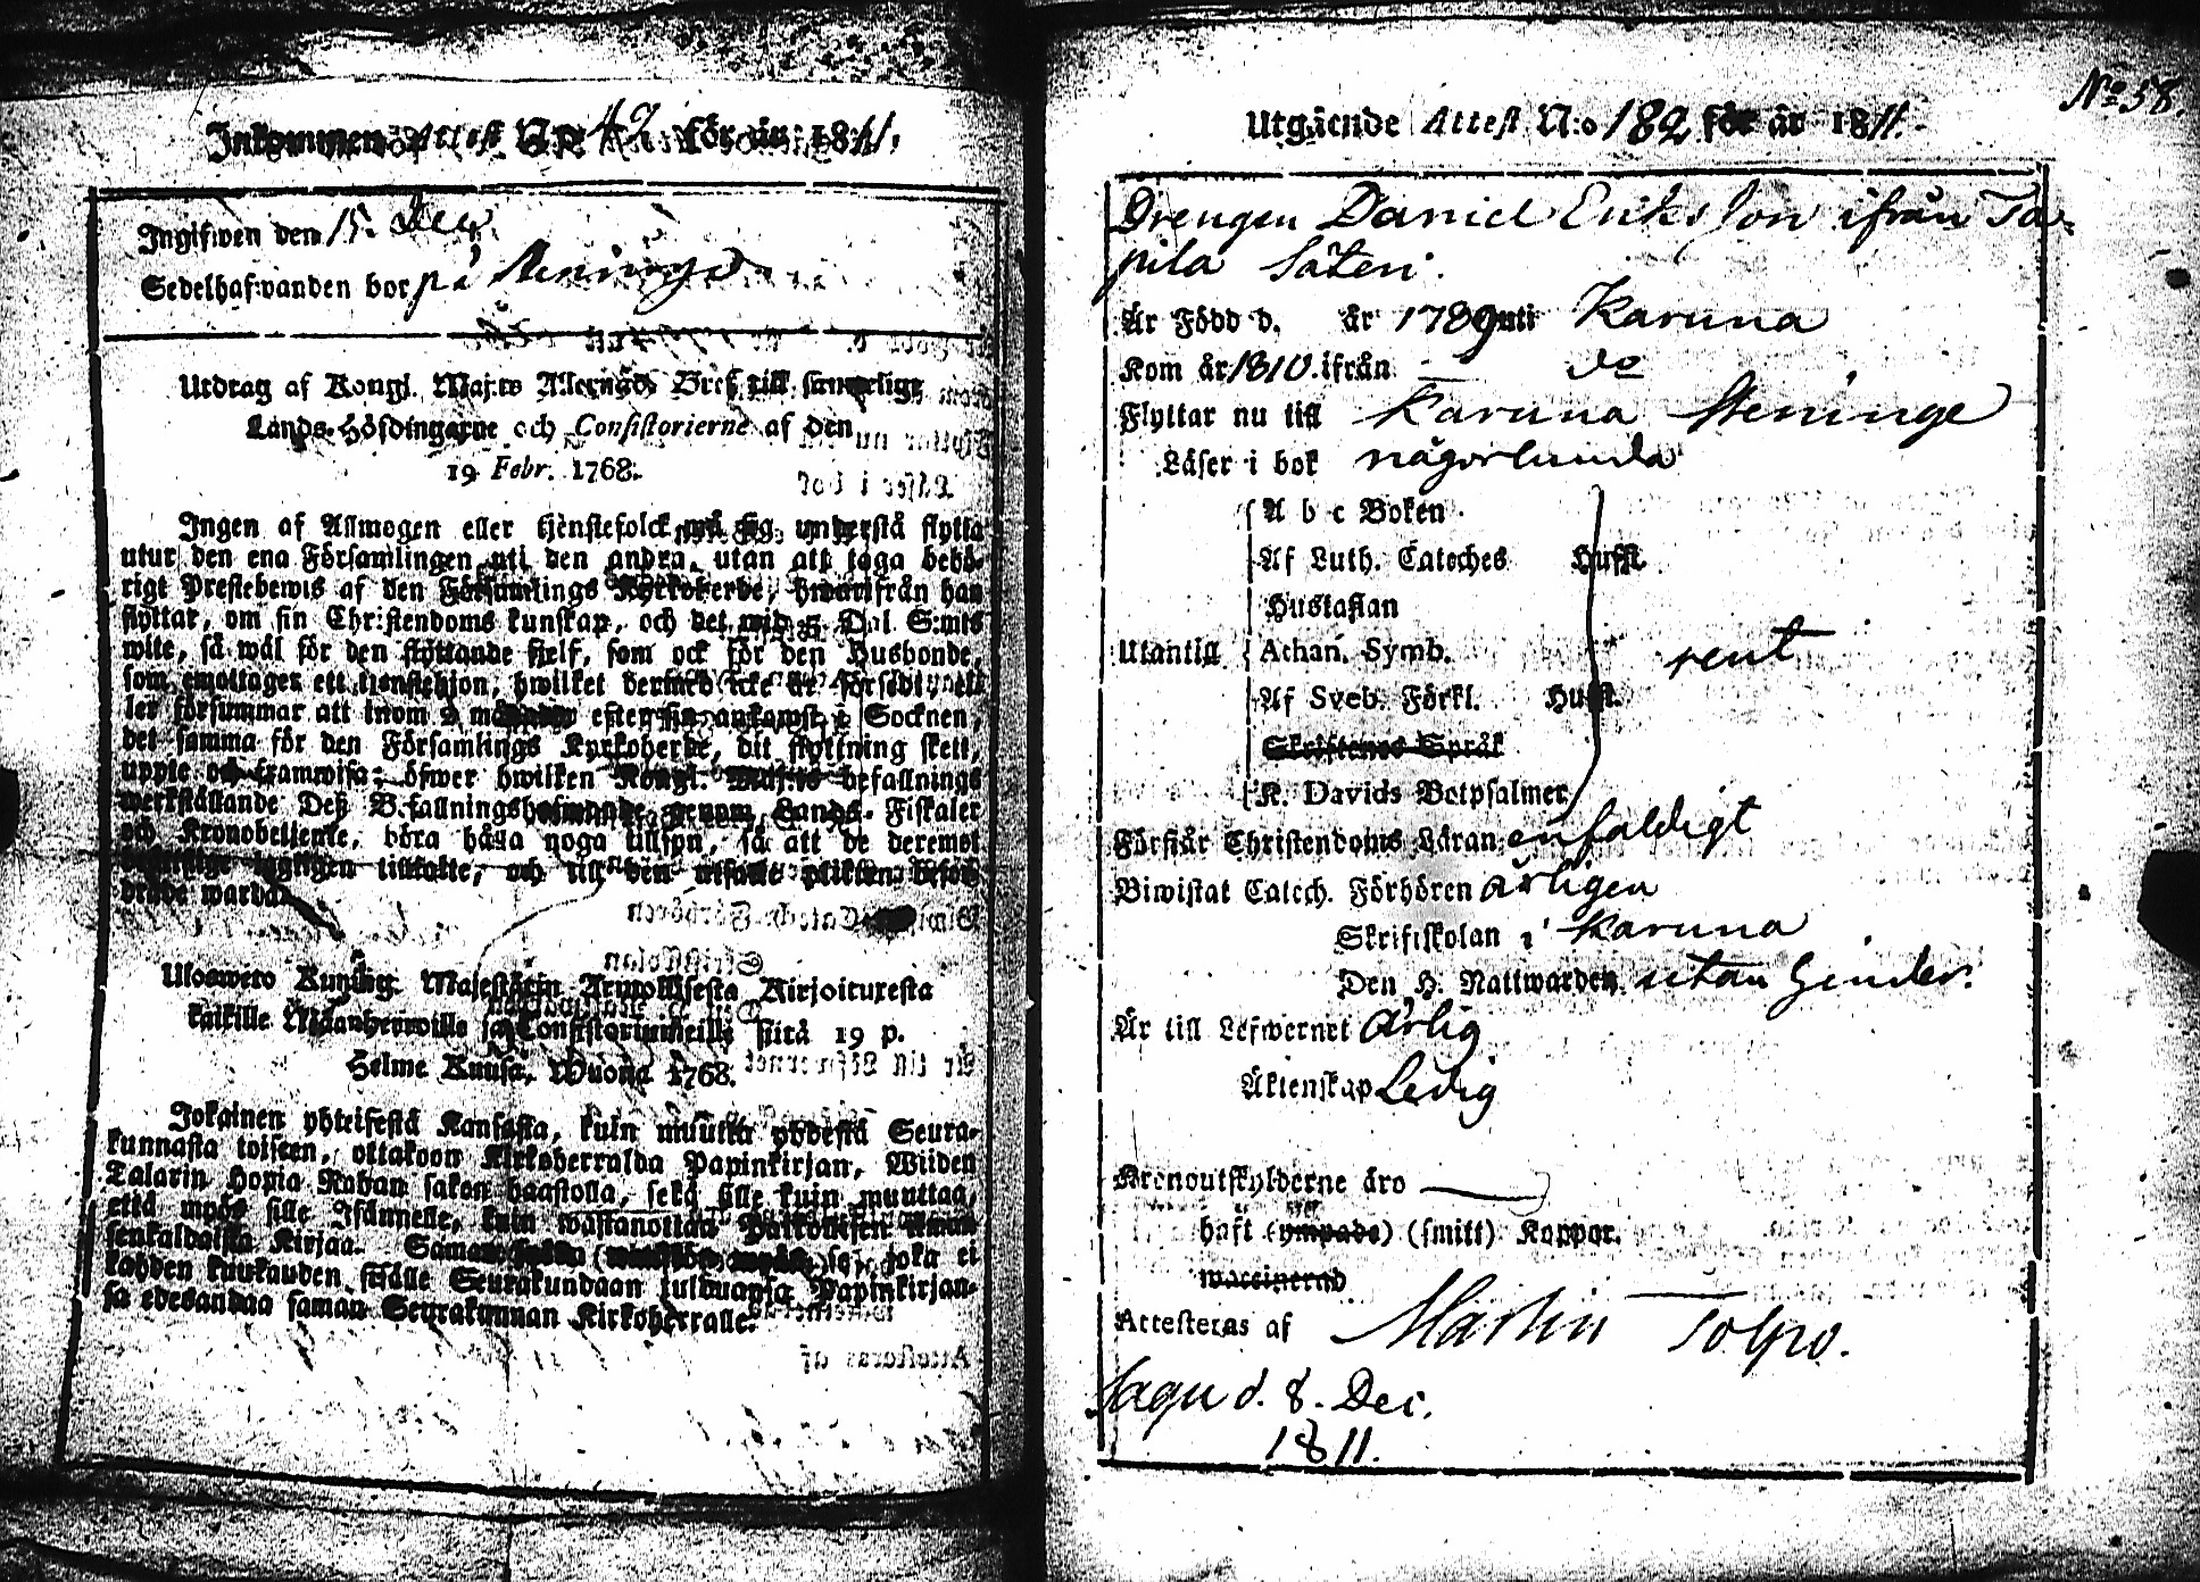 Inkommen Attest N:o 42 för år 1811.
Ingifwen den 15. Dec.
Sedelhafwanden bor på Steninge
Utdrag af Kongl. Maj:ts Allernåd. Bref till samtelige
Lands-Höfdingarne och Consistorierne af den
19 Febr. 1768.
Ingen af Allmogen eller tjenstefolck må sig understå flytta
utur den ena Församlingen uti den andra, utan att taga behö-
rigt Prestebewis af den Församlings Kyrkoherde, hwarifrån han
flyttar, om sin Christendoms kunskap, och det wid 5 Dal. S:mts
wite, så wäl för den flyttande sjelf, som ock för den Husbonde,
som emottager ett tjenstehjon, hwilket dermed icke är försedt, el-
ler försummar att inom 2 månader efter sin ankomst i Socknen,
det samma för den Församlings Kyrkoherde, dit flyttning skett,
uppte och framwisa: öfwer hwilken Kongl. Maj:ts befallnings
werkställande Deß Befallningshafwande, genom Lands-Fiskaler
och Kronobetjente, böra hålla noga tillsyn, så att de deremot
lagligen tilltalte, och till den utsatte plikten beför-
drade warda.
Ulosweto Kuning. Majestätin Armollisesta Kirjoituxesta
kaikille Maanherroille ja Consistoriumeille siitä 19 p.
Helme Kuusa, Wuona 1768.
Jokainen yhteisestä Kansasta, kuin muutta yhdestä Seura-
kunnasta toiseen, ottakoon Kirkoherralda Papinkirjan, Wiiden
Talarin Hopia Rahan sakon haastolla, sekä sille kuin muuttaa,
että myös sille Isännelle, kuin wastanottaa Palkollisen ilman
senkaldaista Kirjaa. Saman joka ei
kahden kuukauden sisälle Seurakundaan tulduansa Papinkirjan-
sa edesandaa saman Seurakunnan Kirkoherralle.
No 58.
Utgående Attest N:o 182 för år 1811.
Drengen Daniel Eriksson ifrån Ta-
pila Säteri.
Är Född d. år 1789 uti Karuna
Kom år 1810. ifrån do
Flyttar nu till Karuna Steninge
Läser i bok någorlunda
A b c Boken
Af Luth. Cateches Hufst.
Hustaflan
Utantill Athan. Symb. rent
Af Sveb. Förkl. Hufst.
Skriftenes Språk
K. Davids Botpsalmer
Förstår Christendoms Läran enfaldigt
Biwistat Catech. Förhören årligen
Skriftskolan i Karuna
Den H. Nattwarden utan hinder.
Är till Lefwernet ärlig
Äktenskap Ledig
Kronoutskylderne äro
haft (ympade) (smitt) Koppor.
waccinerad
Attesteras af Martin Tolpo.
Sagu d. 8. Dec.
1811.